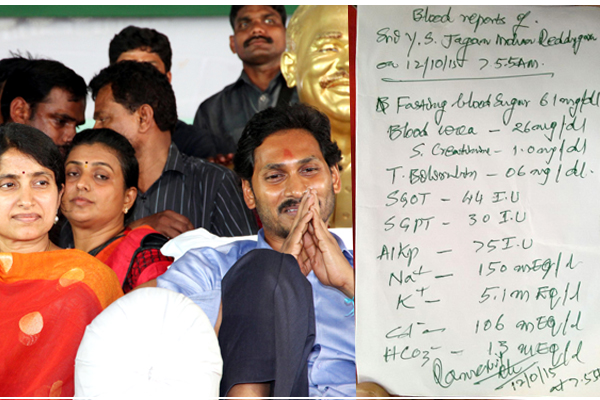 Blood reports of
Sri Y. S. Jagan Mohan Reddy garu
on 12/10/15 7.55AM.
Fasting blood Sugar 61 mg/dl
Blood urea - 26 mg/dl
S. Creatinine - 1.0 mg/dl
T. Bilirubin - 06 mg/dl.
SGOT - 44 I.U
SGPT - 30 I.U
AlKp - 75 I.U
Na+ - 150 mEq/l
K+ - 5.1 mEq/l
Cl- - 106 mEq/l
HCO3- - 13 mEq/l
12/0/15
at 7.55